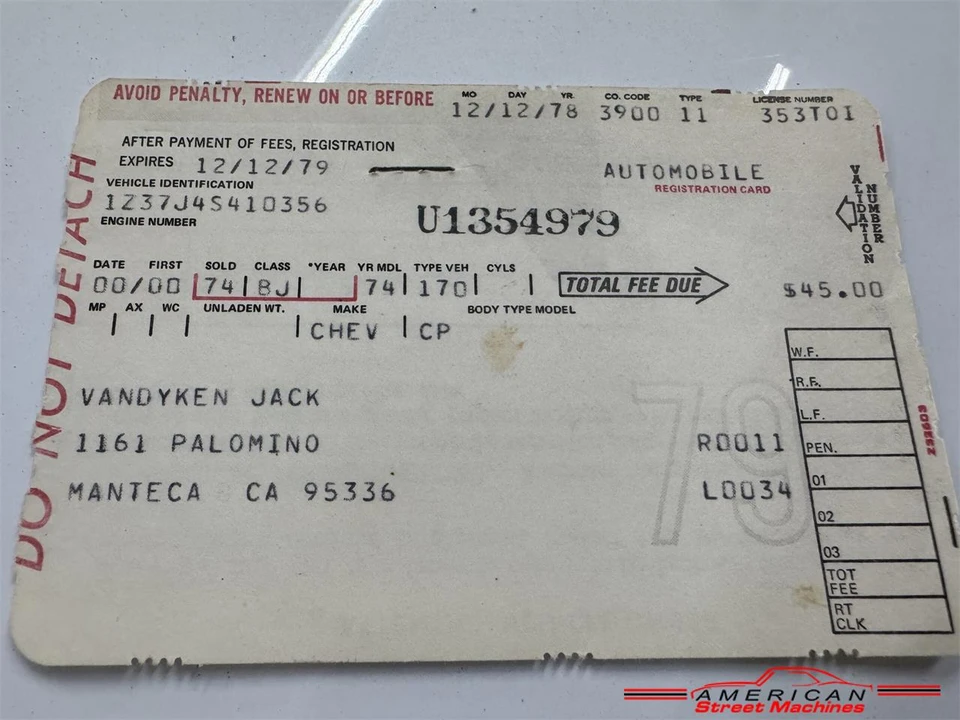 AVOID PENALTY, RENEW ON OR BEFORE
MO DAY YR. CO. CODE TYPE LICENSE NUMBER
12/12/78 3900 11 353TOI
AFTER PAYMENT OF FEES, REGISTRATION
EXPIRES 12/12/79
AUTOMOBILE
REGISTRATION CARD
VALIDATION NUMBER
VEHICLE IDENTIFICATION
1Z37J4S410356
ENGINE NUMBER
U1354979
DATE FIRST SOLD CLASS *YEAR YR MDL TYPE VEH CYLS
00/00 74 BJ 74 170
TOTAL FEE DUE
$45.00
MP AX WC UNLADEN WT. MAKE BODY TYPE MODEL
CHEV CP
W.F.
R.F.
L.F.
PEN.
01
02
03
TOT FEE
RT CLK
VANDYKEN JACK
1161 PALOMINO R0011
MANTECA CA 95336 L0034
79
DO NOT DETACH
AMERICAN
Street Machines